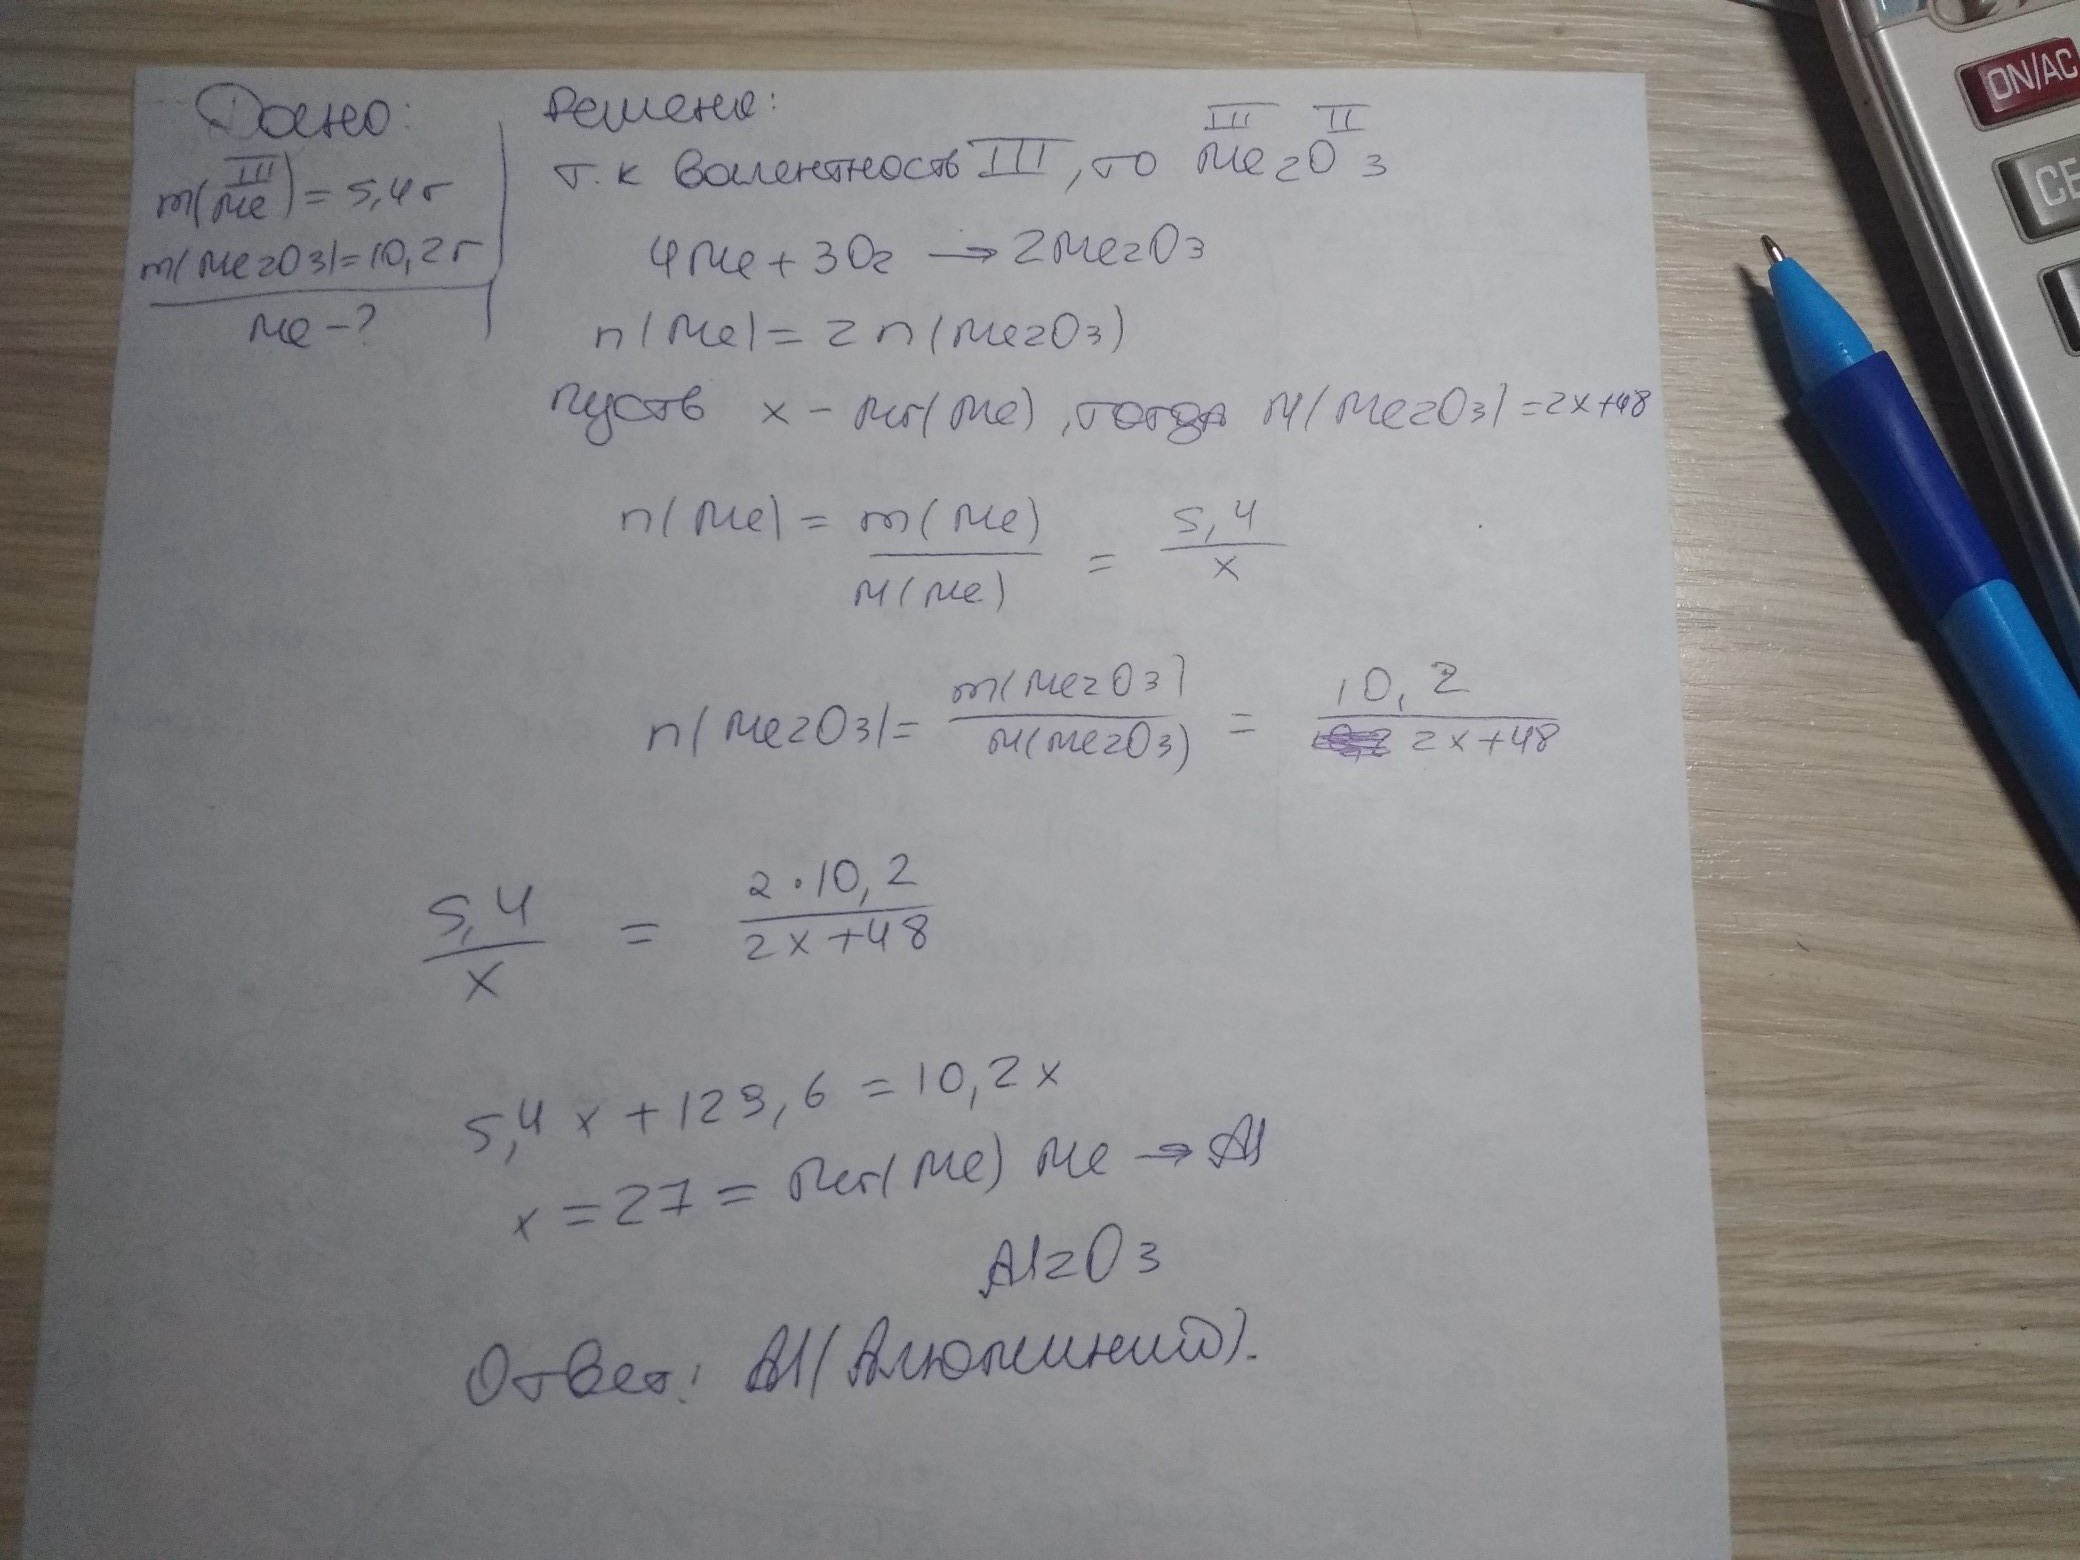 Дано:
m(Me) = 5,4 г
III
m(Me2O3) = 10,2 г
Me - ?
Решение:
III II
т.к валентность III, то Me2O3
4Me + 3O2 → 2Me2O3
n(Me) = 2n(Me2O3)
пусть x - Mr(Me), тогда M(Me2O3) = 2x+48
n(Me) = m(Me) / M(Me) = 5,4 / x
n(Me2O3) = m(Me2O3) / M(Me2O3) = 10,2 / 2x+48
5,4 / x = 2·10,2 / 2x+48
5,4x + 129,6 = 10,2x
x = 27 = Mr(Me) Me → Al
Al2O3
Ответ: Al (Алюминий).
ON/AC
CE